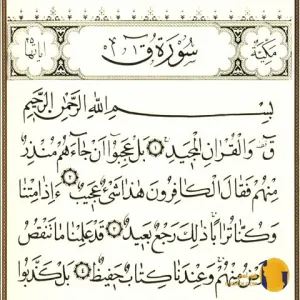 مَكِّيَّة سُورَةُ ق اٰيَاتُهَا
بِسْمِ اللهِ الرَّحْمٰنِ الرَّحِيمِ
قٓ وَالْقُرْاٰنِ الْمَجِيدِ ۝١ بَلْ عَجِبُٓوا اَنْ جَٓاءَهُمْ مُنْذِرٌ
مِنْهُمْ فَقَالَ الْكَافِرُونَ هٰذَا شَيْءٌ عَجِيبٌ ۝٢ ءَاِذَا مِتْنَا
وَكُنَّا تُرَابًا ذٰلِكَ رَجْعٌ بَعِيدٌ ۝٣ قَدْ عَلِمْنَا مَا تَنْقُصُ
مِنْهُمْ وَعِنْدَنَا كِتَابٌ حَفِيظٌ ۝٤ بَلْ كَذَّبُوا